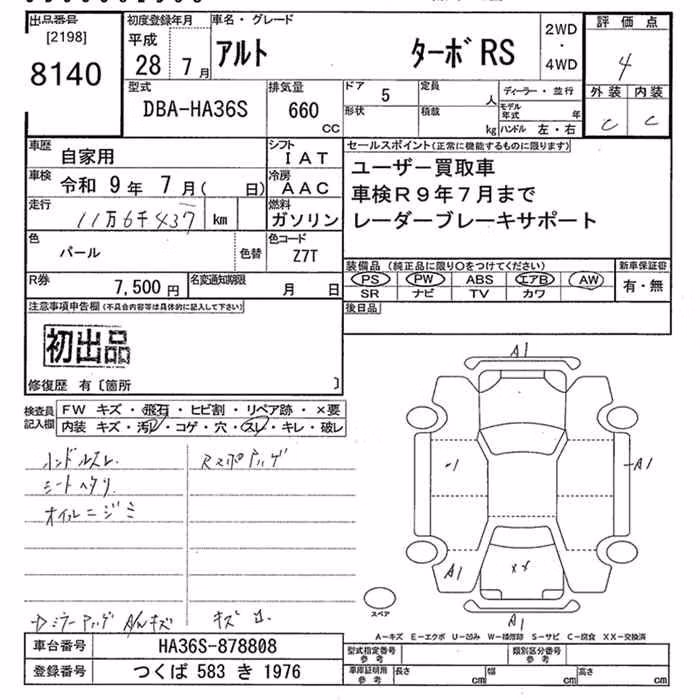 出品番号
[2198]
8140
初度登録年月
平成
28 7月
車名・グレード
アルト ターボRS
2WD
・
4WD
評価点
4
外装 内装
C C
型式
DBA-HA36S
排気量
660
cc
ドア
5
定員
人
ディーラー・並行
形状
積載
kg
モデル年式 年
ハンドル 左・右
車歴
自家用
シフト
IAT
車検
令和 9年 7月( 日)
冷房
AAC
走行
11万6千437 km
燃料
ガソリン
色
パール
色替
色コード
Z7T
R券
7,500円
名変通知期限
月 日
セールスポイント(正常に機能するものに限ります)
ユーザー買取車
車検R9年7月まで
レーダーブレーキサポート
装備品(純正品に限り○をつけてください)
新車保証書
PS PW ABS エアB AW
有・無
SR ナビ TV カワ
後日品
注意事項申告欄(不具合内容等は具体的に記入して下さい)
初出品
修復歴 有〔箇所 〕
検査員
記入欄
FW キズ・飛石・ヒビ割・リペア跡・×要
内装 キズ・汚レ・コゲ・穴・スレ・キレ・破レ
ハンドルスレ
シートヘタリ
オイルニジミ
A1
A1
A1
XX
A1
スペア
A-キズ E-エクボ U-凹み W-補修跡 S-サビ C-腐食 XX-交換済
車台番号
HA36S-878808
登録番号
つくば 583 き 1976
型式指定番号
参考
類別区分番号
参考
車庫証明用
参考
長さ cm
幅 cm
高さ cm